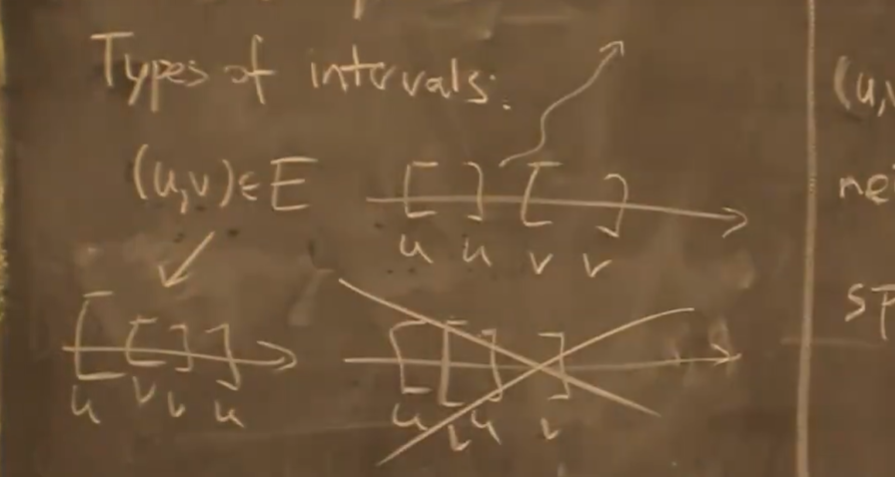 Types of intervals:
(u,v)∈E [ ] [ ]
u u v v
[ [ ] ] [ [ ] ]
u v v u u v u v
(u,v
ne
sp